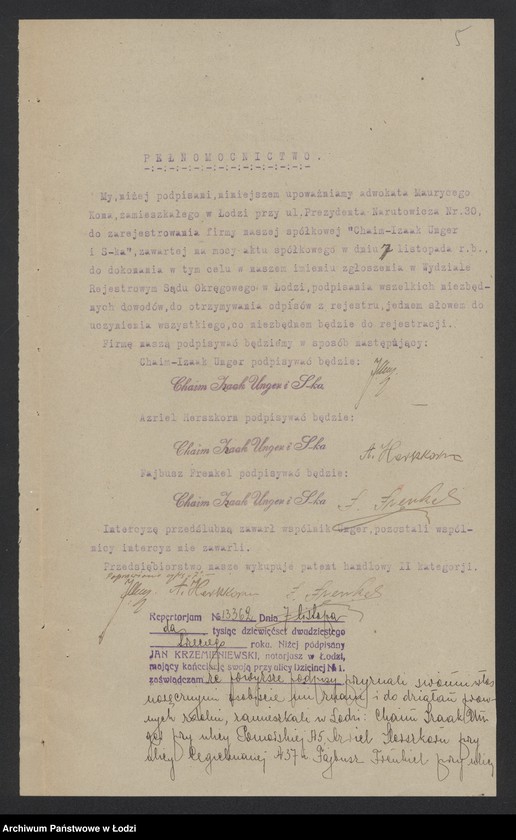 5
PEŁNOMOCNICTWO.
My, niżej podpisani, niniejszem upoważniamy adwokata Maurycego
Kona, zamieszkałego w Łodzi przy ul. Prezydenta Narutowicza Nr. 30,
do zarejestrowania firmy naszej spółkowej "Chaim-Izaak Unger
i S-ka", zawartej na mocy aktu spółkowego w dniu 7 listopada r.b.,
do dokonania w tym celu w naszem imieniu zgłoszenia w Wydziale
Rejestrowym Sądu Okręgowego w Łodzi, podpisania wszelkich niezbęd-
nych dowodów, do otrzymywania odpisów z rejestru, jednem słowem do
uczynienia wszystkiego, co niezbędnem będzie do rejestracji.
Firmę naszą podpisywać będziemy w sposób następujący:
Chaim-Izaak Unger podpisywać będzie:
Chaim Izaak Unger i S-ka
Azriel Herszkorn podpisywać będzie:
Chaim Izaak Unger i S-ka
A. Herszkorn
Fajbusz Frenkel podpisywać będzie:
Chaim Izaak Unger i S-ka
F. Frenkel
Intercyzę przedślubną zawarł wspólnik Unger, pozostali wspól-
nicy intercyz nie zawarli.
Przedsiębiorstwo nasze wykupuje patent handlowy II kategorji.
A. Herszkorn F. Frenkel
Repertorjum № 13362 Dnia 7 listopa
da tysiąc dziewięćset dwudziestego
roku. Niżej podpisany
JAN KRZEMIENIEWSKI, notarjusz w Łodzi,
mający kancelarję swoją przy ulicy Dzielnej № 1.
zaświadczam że powyższe podpisy przyznali swoimi włas
noręcznymi osobiście mi znani i do działań praw
nych zdolni, zamieszkali w Łodzi: Chaim Izaak Un
ger przy ulicy Pomorskiej Azriel Herszkorn przy
ulicy Cegielnianej № 57 i Fajbusz Frenkiel przy ulicy
Archiwum Państwowe w Łodzi